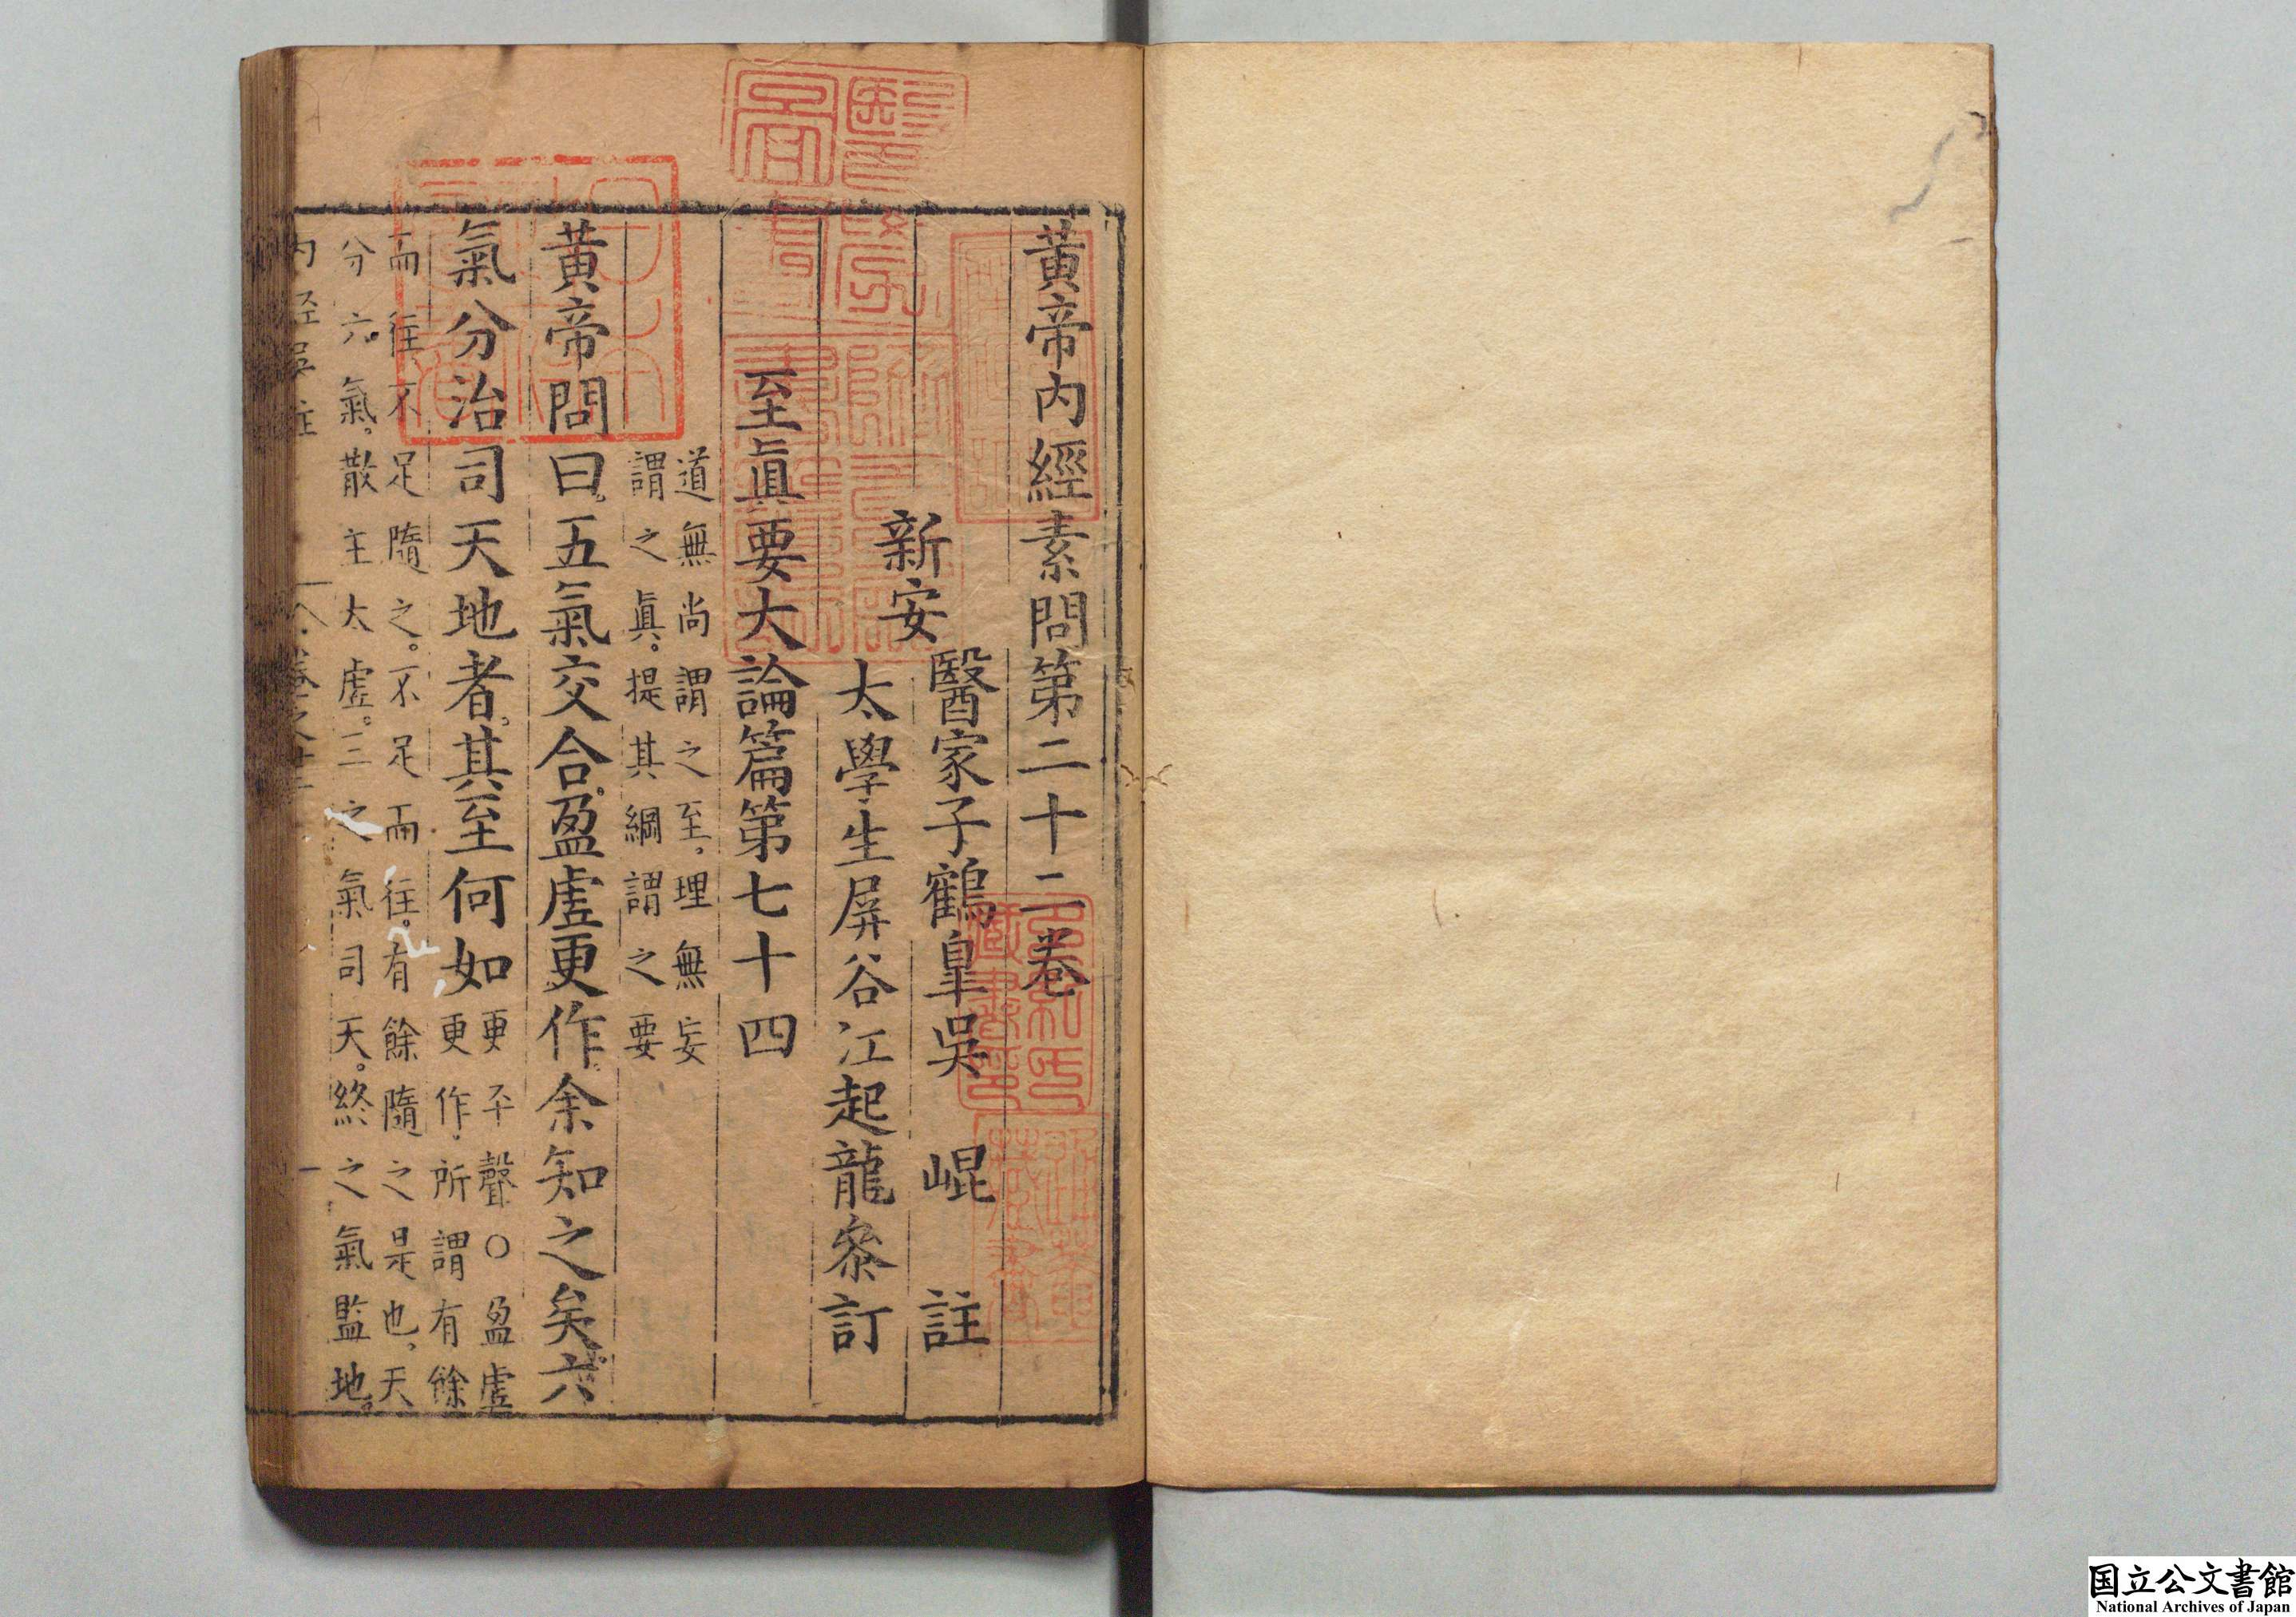 黄帝内經素問第二十二卷
新安
醫家子鶴皐吳 崐 註
太學生屏谷江起龍叅訂
至眞要大論篇第七十四
道無尚謂之至。理無妄
謂之眞。提其綱謂之要
黄帝問曰。五氣交合。盈虛更作。余知之矣。六
氣分治司天地者。其至何如
更平聲○盈虛
更作。所謂有餘
而往。不足隨之。不足而往。有餘隨之是也。天
分六氣。散主太虛。三之氣司天。終之氣監地。
国立公文書館
National Archives of Japan